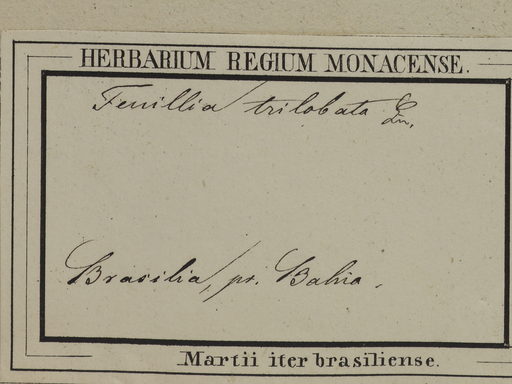 HERBARIUM REGIUM MONACENSE.
Feuillia trilobata Ln.
Brasilia, pr. Bahia.
Martii iter brasiliense.